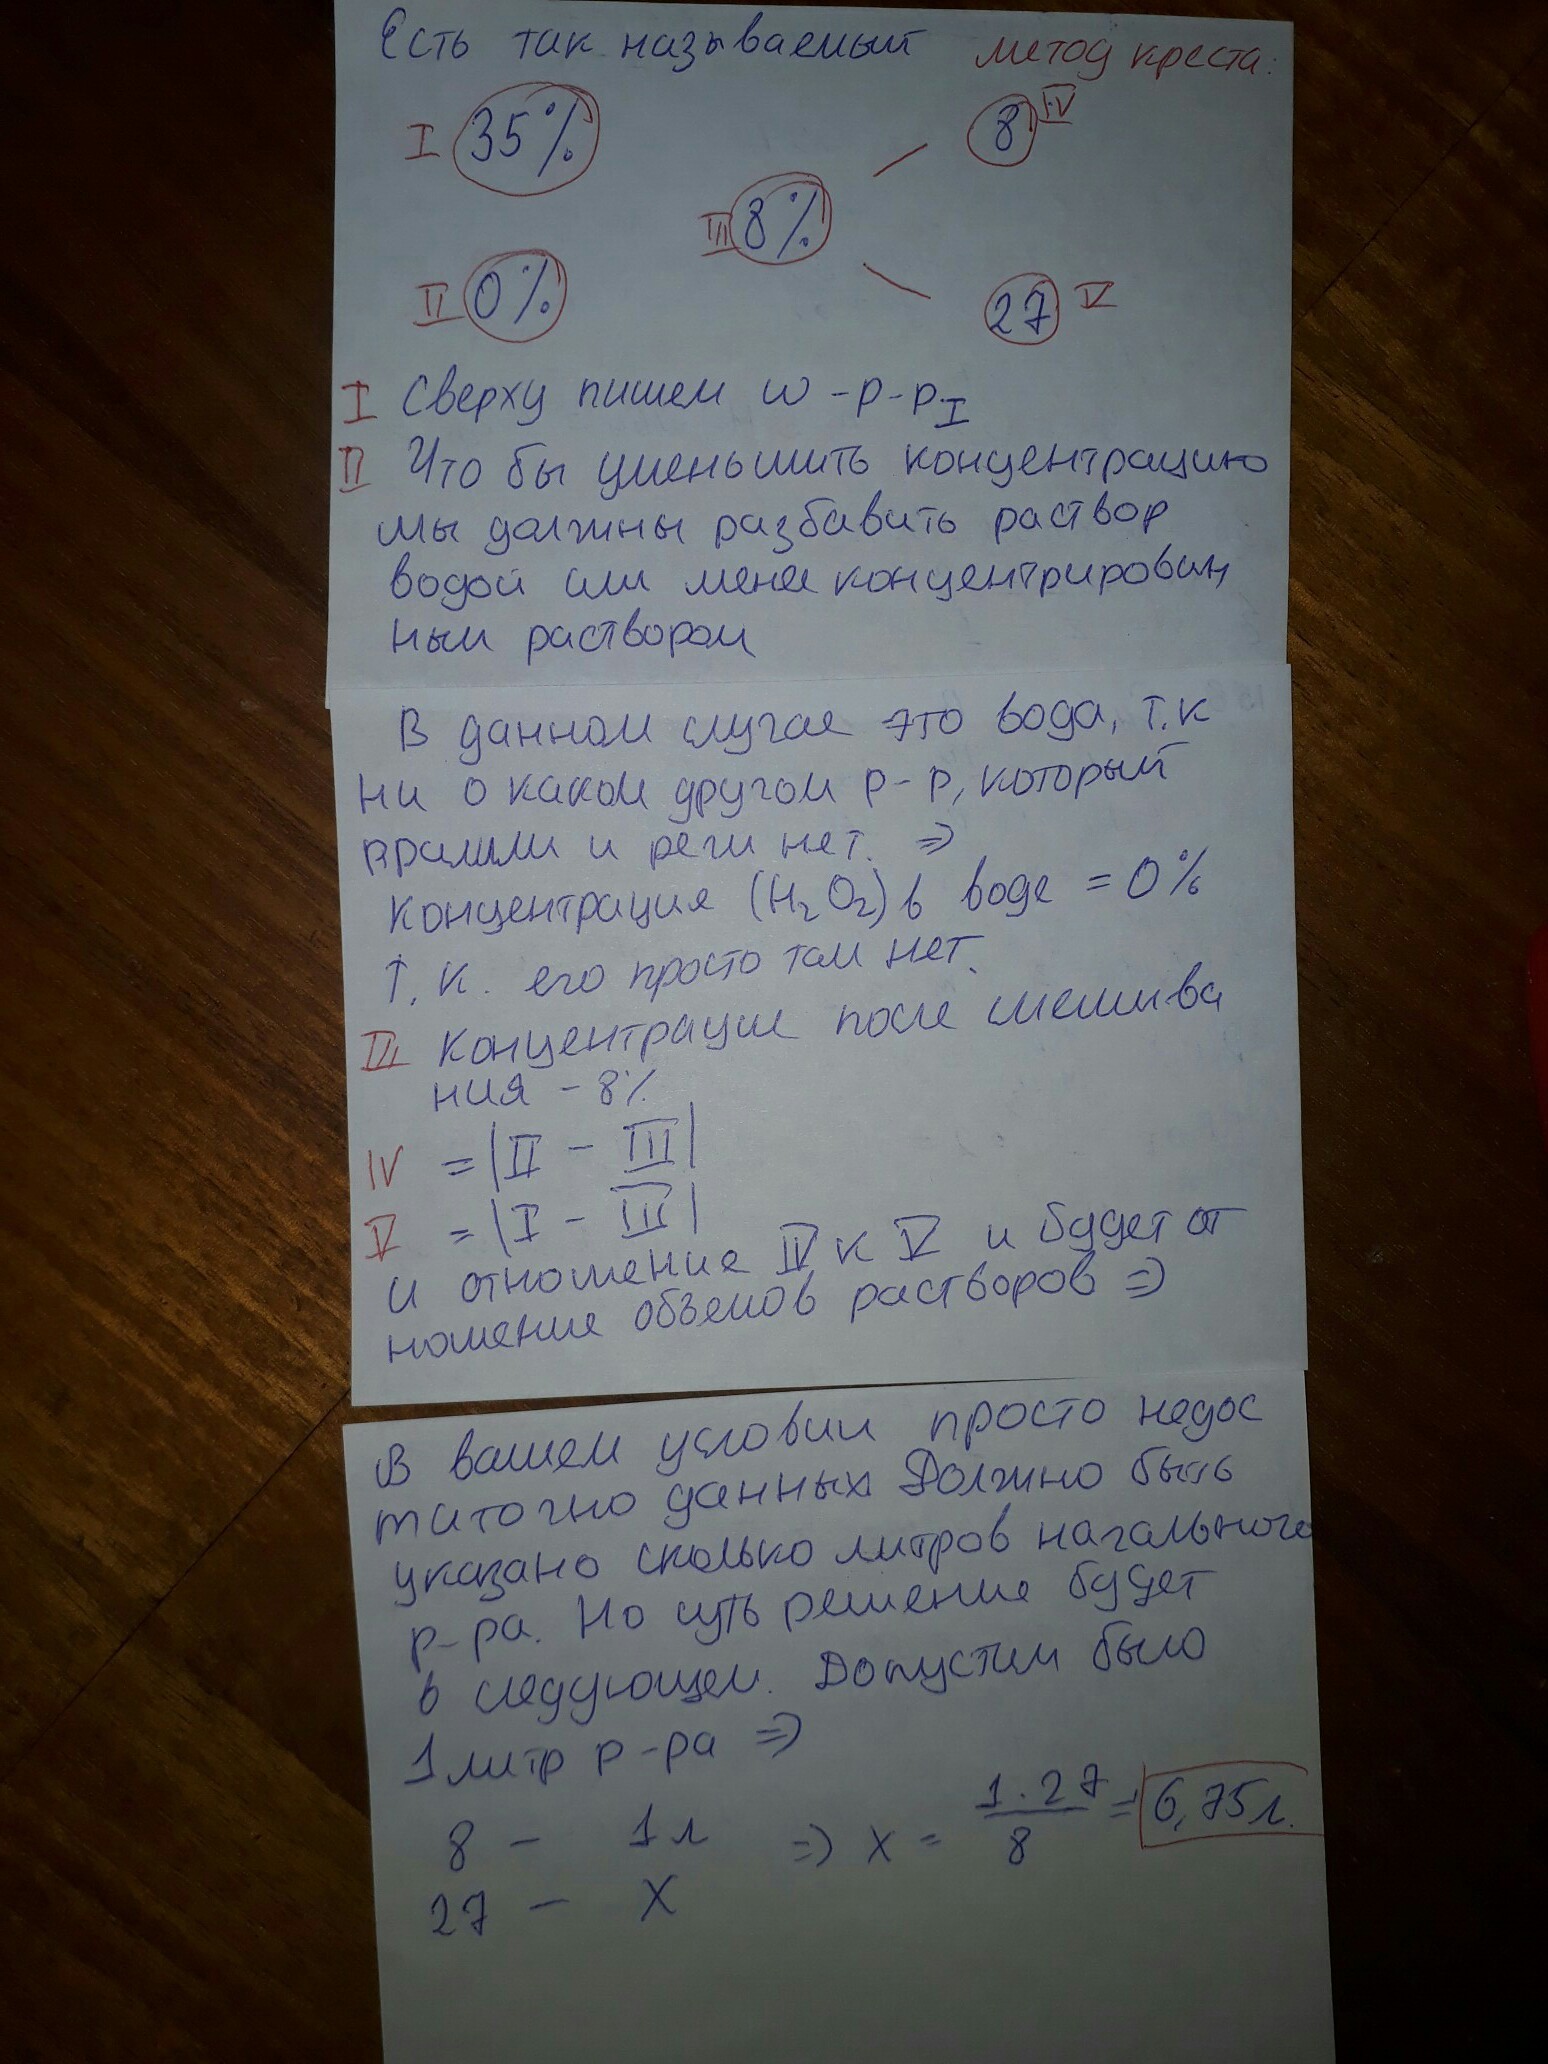 Есть так называемый метод креста:
I 35% 8 IV
III 8%
II 0% 27 V
I Сверху пишем ω-р-р I
II Что бы уменьшить концентрацию
мы должны разбавить раствор
водой или менее концентрирован
ным раствором
В данном случае это вода, т.к
ни о каком другом р-р, который
и речи нет. ⇒
Концентрация (H₂O₂) в воде = 0%
т.к. его просто там нет.
III Концентрация после смешива
ния - 8%
IV = |II - III|
V = |I - III|
и отношение IV к V и будет от
ношение объемов растворов ⇒
В вашем условии просто недос
таточно данных Должно быть
указано сколько литров начального
р-ра. Но суть решение будет
в следующем. Допустим было
1 литр р-ра ⇒
8 - 1л ⇒ x = 1·27/8 = 6,75л.
27 - X